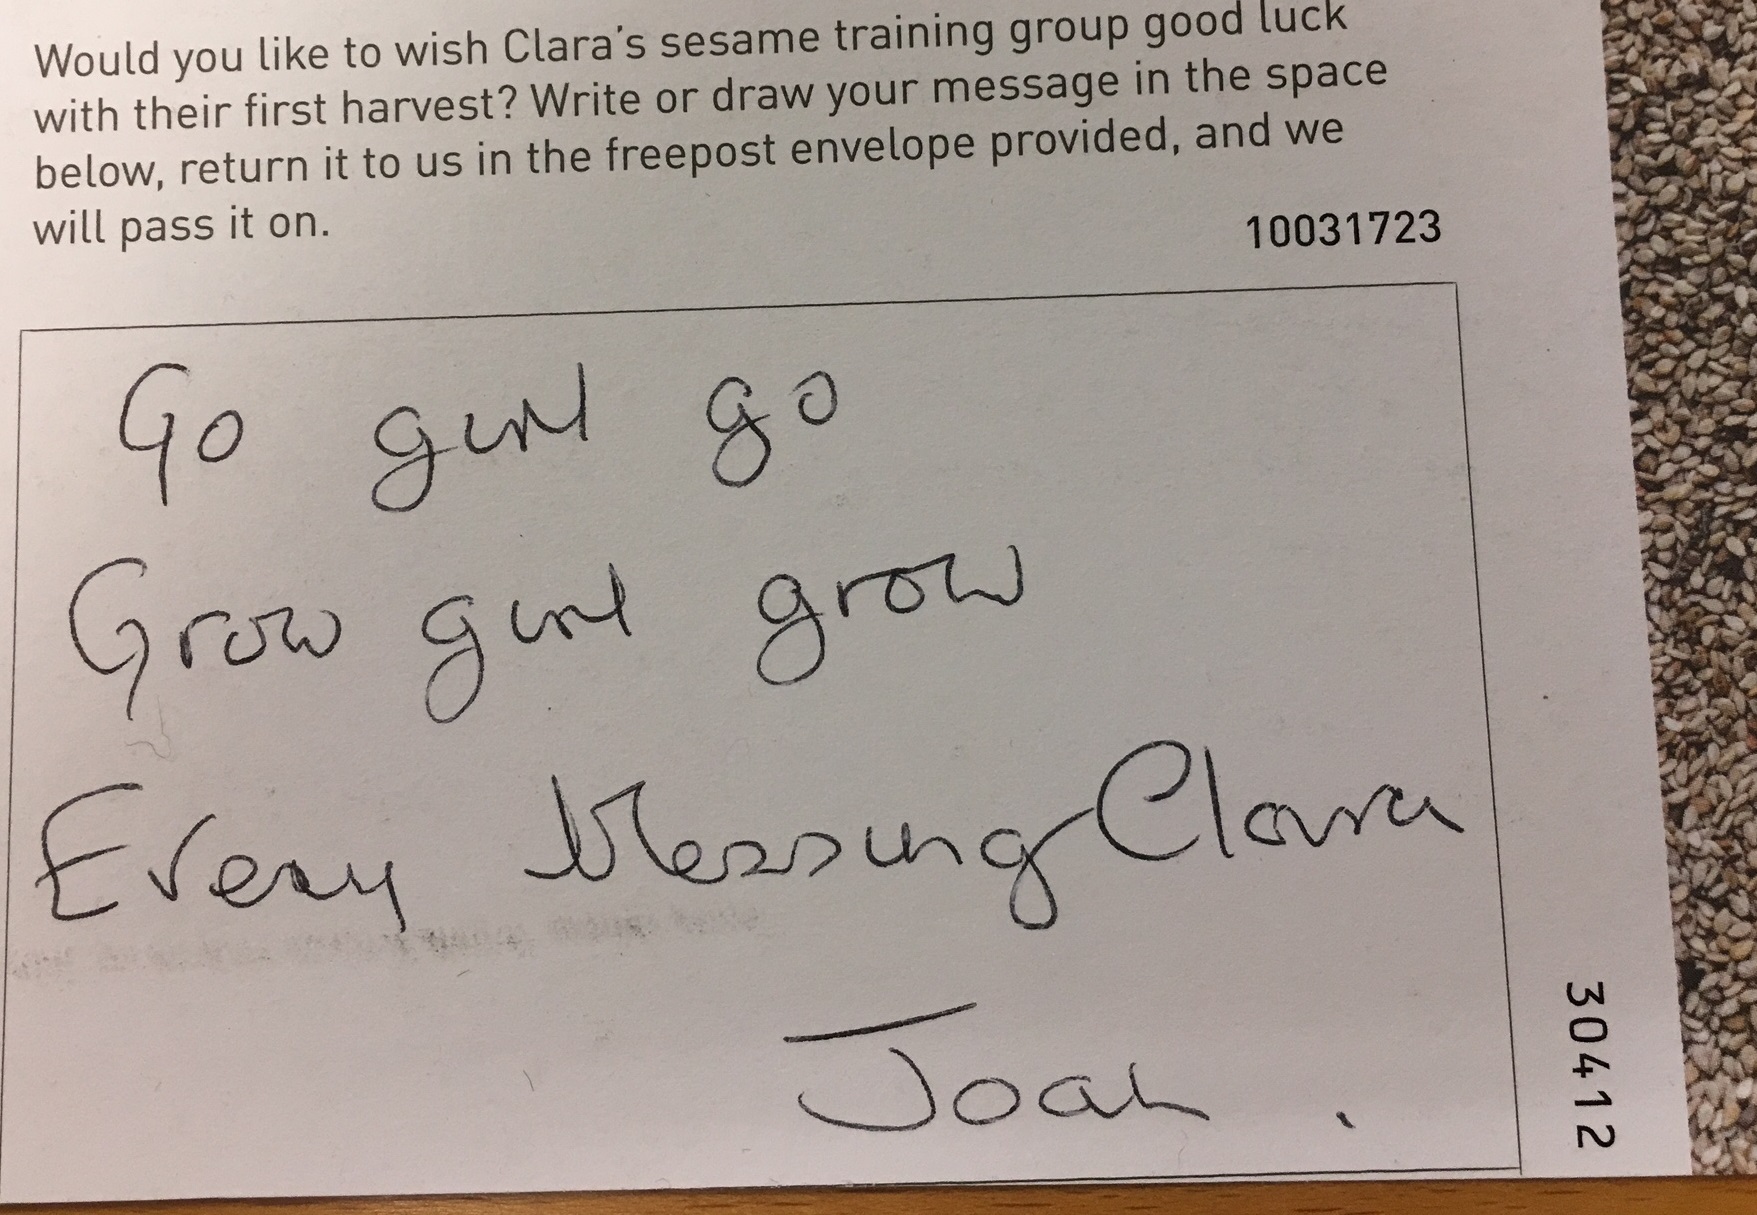 Would you like to wish Clara's sesame training group good luck
with their first harvest? Write or draw your message in the space
below, return it to us in the freepost envelope provided, and we
will pass it on.
10031723
Go girl go
Grow girl grow
Every blessing Clara
Joan.
30412